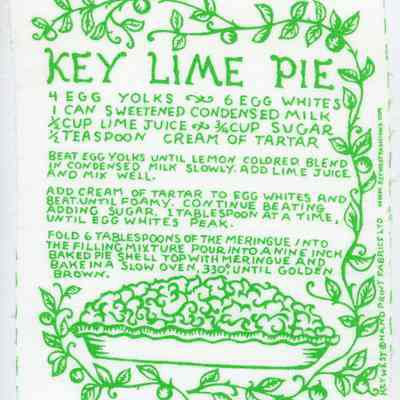 KEY LIME PIE
4 EGG YOLKS 6 EGG WHITES
1 CAN SWEETENED CONDENSED MILK
½ CUP LIME JUICE ¾ CUP SUGAR
½ TEASPOON CREAM OF TARTAR
BEAT EGG YOLKS UNTIL LEMON COLORED. BLEND
IN CONDENSED MILK SLOWLY. ADD LIME JUICE
AND MIX WELL.
ADD CREAM OF TARTAR TO EGG WHITES AND
BEAT UNTIL FOAMY. CONTINUE BEATING,
ADDING SUGAR, 1 TABLESPOON AT A TIME,
UNTIL EGG WHITES PEAK.
FOLD 6 TABLESPOONS OF THE MERINGUE INTO
THE FILLING MIXTURE. POUR INTO A NINE INCH
BAKED PIE SHELL TOP WITH MERINGUE AND
BAKE IN A SLOW OVEN, 330° UNTIL GOLDEN
BROWN.
KEY WEST HAND PRINT FABRICS LTD